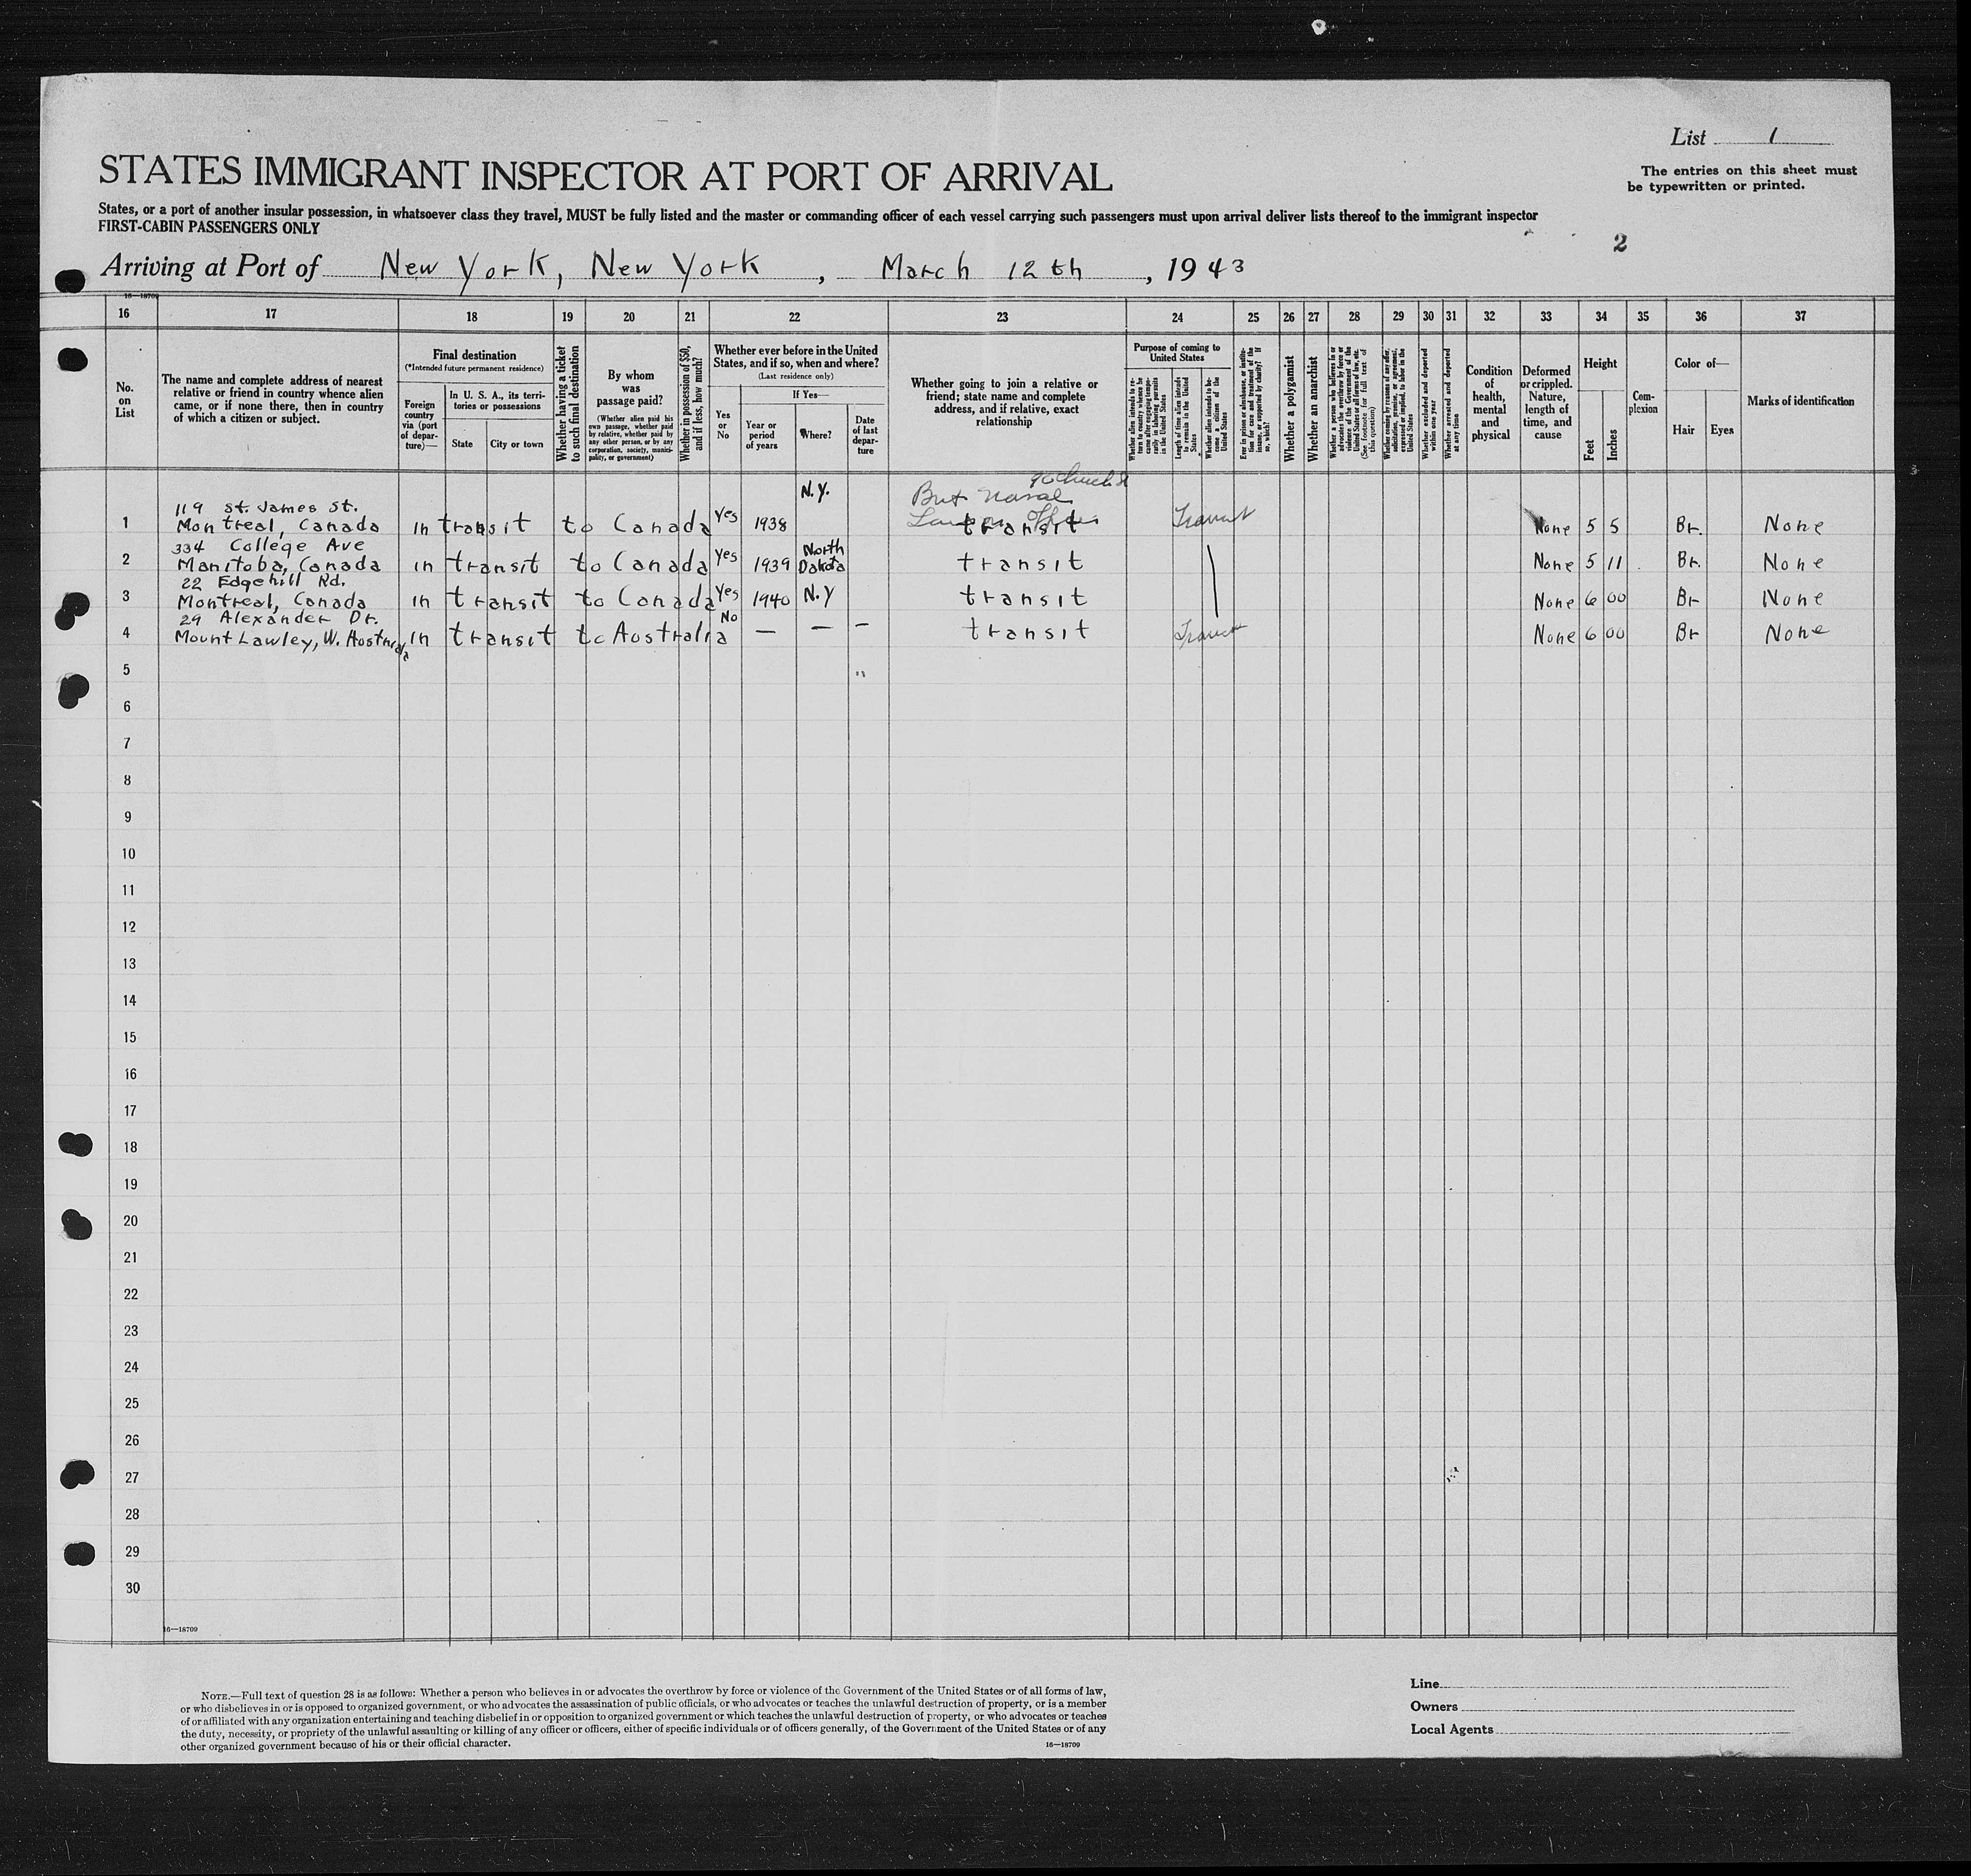 List 1
The entries on this sheet must
be typewritten or printed.
STATES IMMIGRANT INSPECTOR AT PORT OF ARRIVAL
States, or a port of another insular possession, in whatsoever class they travel, MUST be fully listed and the master or commanding officer of each vessel carrying such passengers must upon arrival deliver lists thereof to the immigrant inspector
FIRST-CABIN PASSENGERS ONLY
2
Arriving at Port of New York, New York, March 12th, 1943
16—18709
16 17 18 19 20 21 22 23 24 25 26 27 28 29 30 31 32 33 34 35 36 37
No. on List
The name and complete address of nearest relative or friend in country whence alien came, or if none there, then in country of which a citizen or subject.
Final destination
(*Intended future permanent residence)
Foreign country via (port of departure)—
In U. S. A., its territories or possessions
State
City or town
Whether having a ticket to such final destination
By whom was passage paid?
(Whether alien paid his own passage, whether paid by relative, whether paid by any other person, or by any corporation, society, municipality, or government)
Whether in possession of $50, and if less, how much?
Whether ever before in the United States, and if so, when and where?
(Last residence only)
Yes or No
If Yes—
Year or period of years
Where?
Date of last departure
Whether going to join a relative or friend; state name and complete address, and if relative, exact relationship
Purpose of coming to United States
Whether alien intends to return to country whence he came after engaging temporarily in laboring pursuits in the United States
Length of time alien intends to remain in the United States
Whether alien intends to become a citizen of the United States
Ever in prison or almshouse, or institution for care and treatment of the insane, or supported by charity? If so, which?
Whether a polygamist
Whether an anarchist
Whether a person who believes in or advocates the overthrow by force or violence of the Government of the United States or all forms of law, etc. (See footnote for full text of this question)
Whether coming by reason of any offer, solicitation, promise, or agreement, expressed or implied, to labor in the United States
Whether excluded and deported within one year
Whether arrested and deported at any time
Condition of health, mental and physical
Deformed or crippled. Nature, length of time, and cause
Height
Feet
Inches
Complexion
Color of—
Hair
Eyes
Marks of identification
N.Y.
Brit Naval
119 St. James St.
1 Montreal, Canada In transit to Canada Yes 1938 transit Transit None 5 5 Br. None
334 College Ave North
2 Manitoba, Canada in transit to Canada Yes 1939 Dakota transit None 5 11 Br. None
22 Edgehill Rd.
3 Montreal, Canada in transit to Canada Yes 1940 N.Y transit None 6 00 Br None
29 Alexander Dr. No
4 Mount Lawley, W. Australia In transit to Australia — — — transit Transit None 6 00 Br None
5
6
7
8
9
10
11
12
13
14
15
16
17
18
19
20
21
22
23
24
25
26
27
28
29
30
16—18709
NOTE.—Full text of question 28 is as follows: Whether a person who believes in or advocates the overthrow by force or violence of the Government of the United States or of all forms of law,
or who disbelieves in or is opposed to organized government, or who advocates the assassination of public officials, or who advocates or teaches the unlawful destruction of property, or is a member
of or affiliated with any organization entertaining and teaching disbelief in or opposition to organized government or which teaches the unlawful destruction of property, or who advocates or teaches
the duty, necessity, or propriety of the unlawful assaulting or killing of any officer or officers, either of specific individuals or of officers generally, of the Government of the United States or of any
other organized government because of his or their official character.
16—18709
Line
Owners
Local Agents